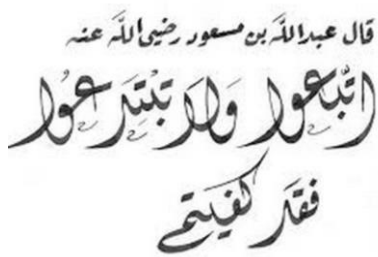 قال عبدالله بن مسعود رضي الله عنه
اتّبعوا ولا تبتدعوا
فقد كفيتم